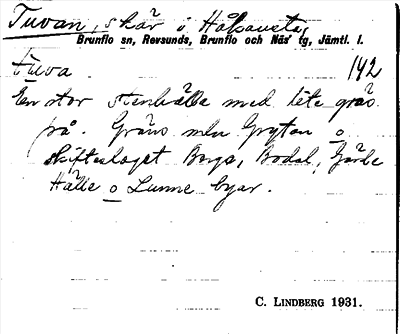 Tuvan, skär i Håkansta,
Brunflo sn, Revsunds, Brunflo och Näs' tg, Jämtl. l.
tuva 142
En stor stenhälla med lite gräs
på. Gräns mln Grytan o
skifteslaget Berge, Bodal, Gärde
Hälle o Lunne byar.
C. LINDBERG 1931.